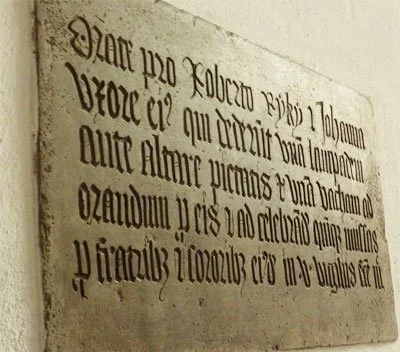 Orate pro Roberto Byky i Johanna
Uxore ei' qui dederūt unā lampadem
ante altare pietatis & unā vacham ad
orandum p eis i ad celebrād quīq missas
p fratribz i sororibz ei'd in v vigiliis